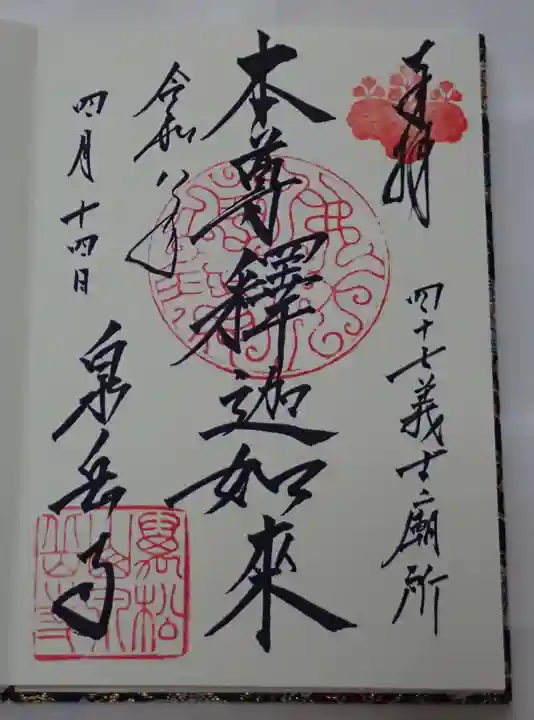 奉拝
四十七義士廟所
本尊釋迦如来
令和八年
四月十四日
泉岳寺
萬松山泉岳寺